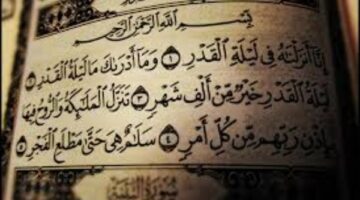 بِسْمِ اللَّهِ الرَّحْمَٰنِ الرَّحِيمِ
إِنَّا أَنزَلْنَاهُ فِي لَيْلَةِ الْقَدْرِ ١ وَمَا أَدْرَاكَ مَا لَيْلَةُ الْقَدْرِ ٢
لَيْلَةُ الْقَدْرِ خَيْرٌ مِّنْ أَلْفِ شَهْرٍ ٣ تَنَزَّلُ الْمَلَائِكَةُ وَالرُّوحُ فِيهَا
بِإِذْنِ رَبِّهِم مِّن كُلِّ أَمْرٍ ٤ سَلَامٌ هِيَ حَتَّىٰ مَطْلَعِ الْفَجْرِ ٥
سُورَةُ